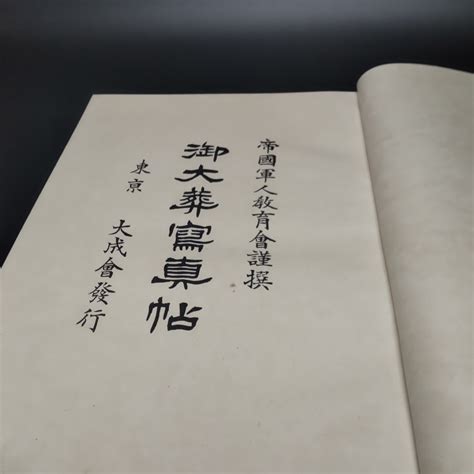 帝國軍人敎育會謹撰
御大葬寫真帖
東京 大成會發行